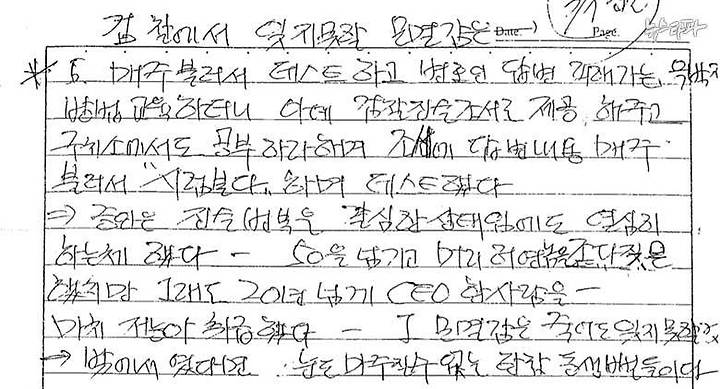 검찰에서 잊지못할 모멸감은 Date. → Page. 뉴스타파
※ 5. 매주 불러서 테스트 하고 변호인 답변 가는, 윽박지
방법 교육 하더니 아예 검찰진술조서로 제공 해주고
구치소에서도 공부 하라하며 조서에 답변내용 매주
불러서 "시험본다" 하며 테스트했다
⇒ 증인은 진술번복을 결심한 상태임에도 열심히
하는체 했다 — 50을 넘기고 머리 허연
했지만 그래도 20여년 넘게 CEO 한사람을 —
마치 저능아 취급했다 — 그 모멸감은 죽어도 잊지못할것
→ 밖에서 였다면 눈도 마주칠수 없는 한참 동생뻘들이다